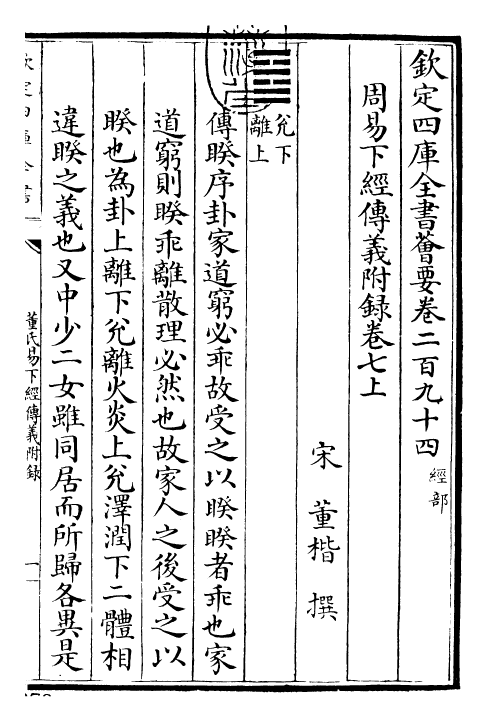 欽定四庫全書薈要卷二百九十四 經部
周易下經傳義附録卷七上
宋 董楷 撰
兌下
離上
傳睽序卦家道窮必乖故受之以睽睽者乖也家
道窮則睽乖離散理必然也故家人之後受之以
睽也為卦上離下兌離火炎上兌澤潤下二體相
違睽之義也又中少二女雖同居而所歸各異是
董氏易下經傳義附錄
一